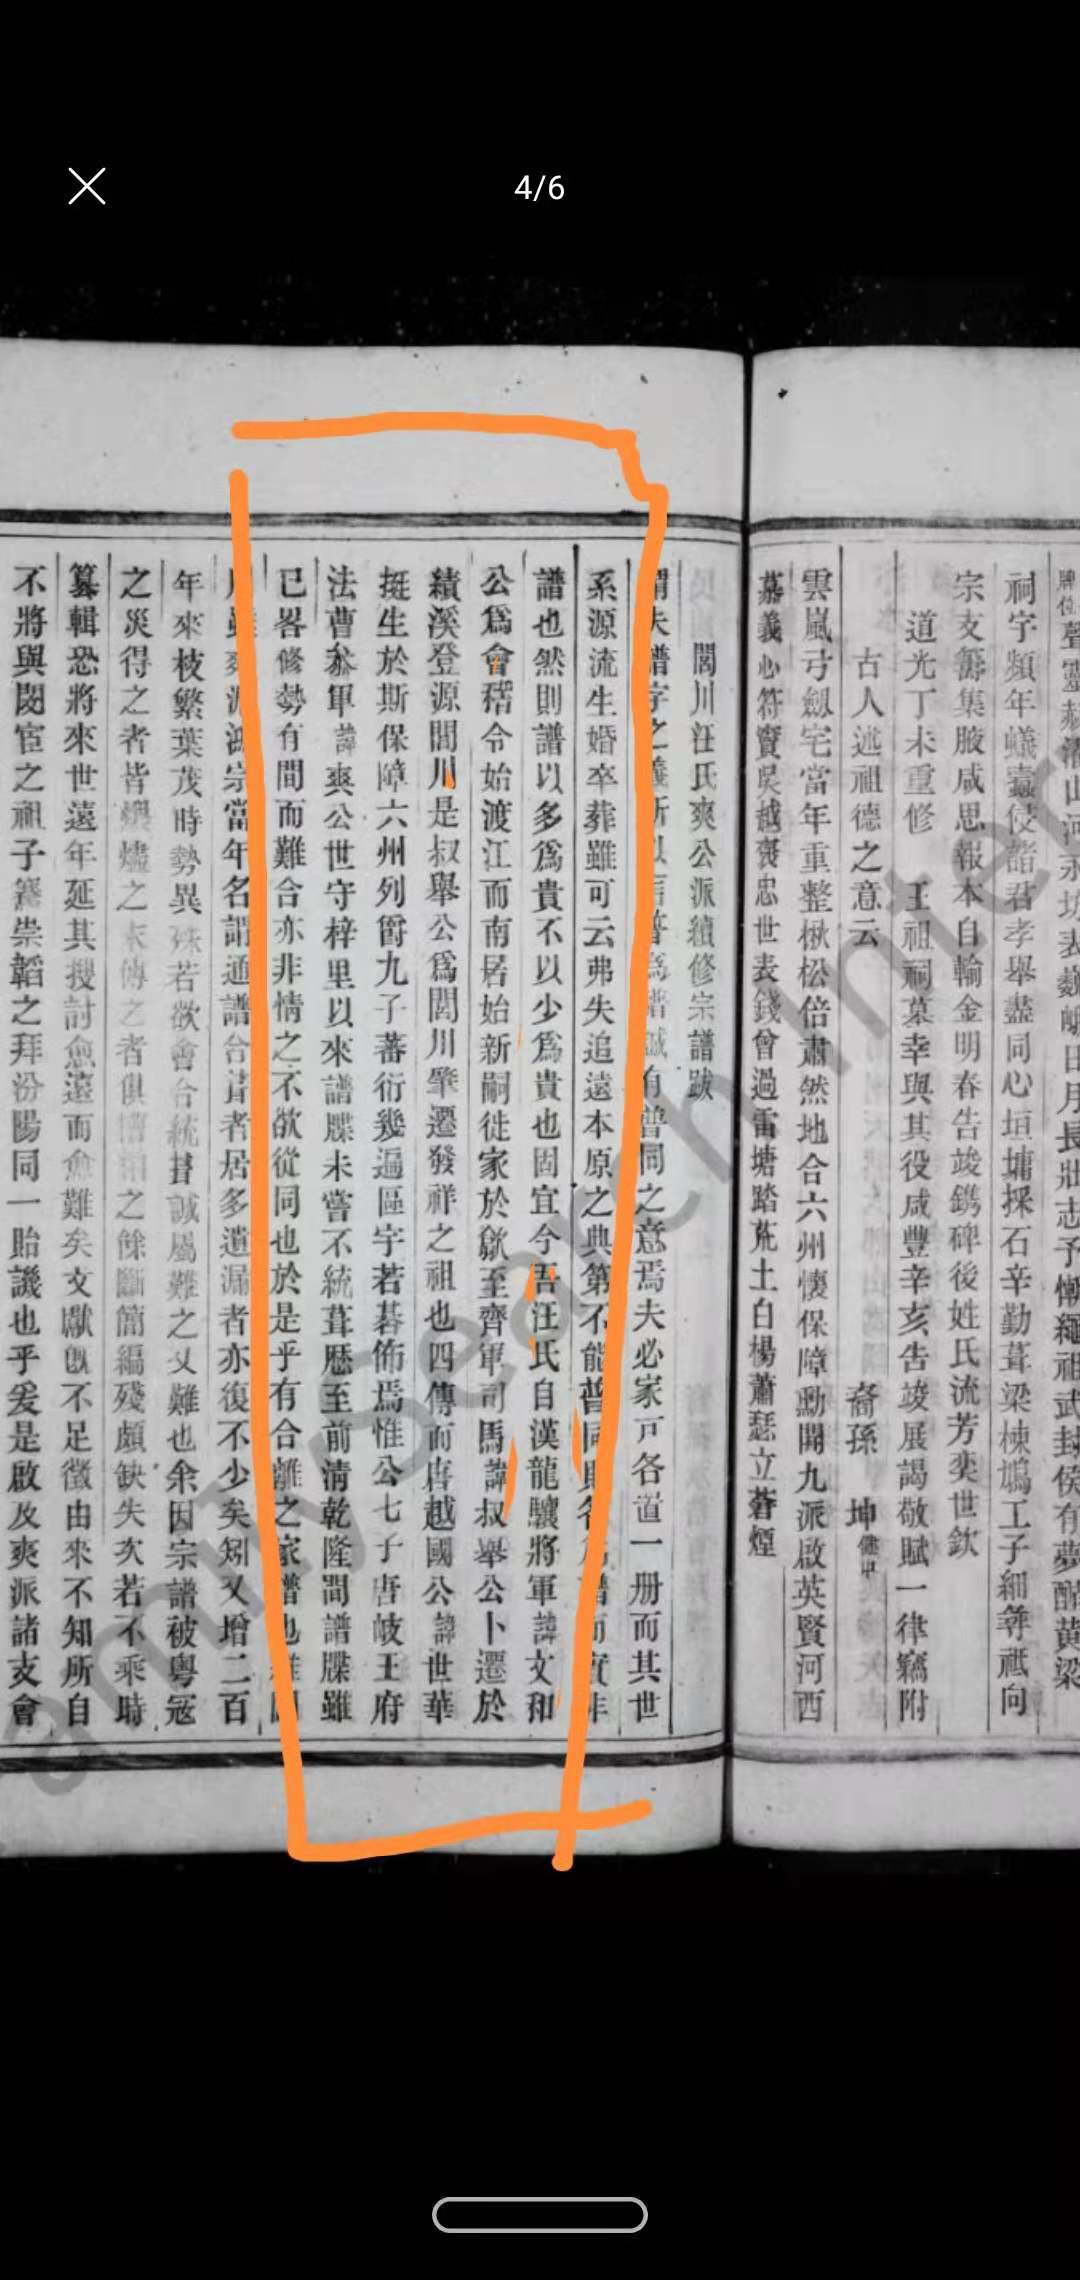 4/6
牌位聲靈赫濯山河永
祠宇頻年蟻蠹侵諸君孝舉盡同心垣墉採石辛勤葺梁棟鳩工子細尋祗向
宗支籌集腋咸思報本自輸金明春告竣鐫碑後姓氏流芳奕世欽
道光丁未重修 王祖祠墓幸與其役咸豐辛亥告竣展謁敬賦一律竊附
古人述祖德之意云 裔孫 坤
雲嵐弓劍宅當年重整楸松倍肅然地合六州懷保障勳開九派啟英賢河西
慕義心符竇吳越褒忠世表錢曾過雷塘踏荒土白楊蕭瑟立蒼煙
閭川汪氏爽公派續修宗譜跋
謂夫譜字之義 普 有普同之意焉夫必家戸各道一册而其世
系源流生婚卒葬雖可云弗失追遠本原之典第不能普同 譜而實非
譜也然則譜以多爲貴不以少爲貴也固宜今吾汪氏自漢龍驤將軍諱文和
公爲會稽令始渡江而南居始新嗣徙家於歙至齊軍司馬諱叔舉公卜遷於
績溪登源閭川是叔舉公爲閭川肇遷發祥之祖也四傳而唐越國公諱世華
挺生於斯保障六州列爵九子蕃衍幾遍區宇若碁佈焉惟公七子唐岐王府
法曹叅軍諱爽公世守梓里以來譜牒未嘗不統葺歷至前清乾隆間譜牒雖
已畧修勢有間而難合亦非情之不欲從同也於是乎有合離之家譜也
宗當年名謂通譜合葺者居多遺漏者亦復不少矣矧又增二百
年來枝繁葉茂時勢異殊若欲會合統葺誠屬難之又難也余因宗譜被粵冦
之災得之者皆燬燼之末傳之者俱 之餘斷簡編殘頗缺失次若不乘時
纂輯恐將來世遠年延其搜討愈遠而愈難矣文獻旣不足徵由來不知所自
不將與閔宦之祖子騫崇韜之拜汾陽同一貽譏也乎爰是啟及爽派諸支會